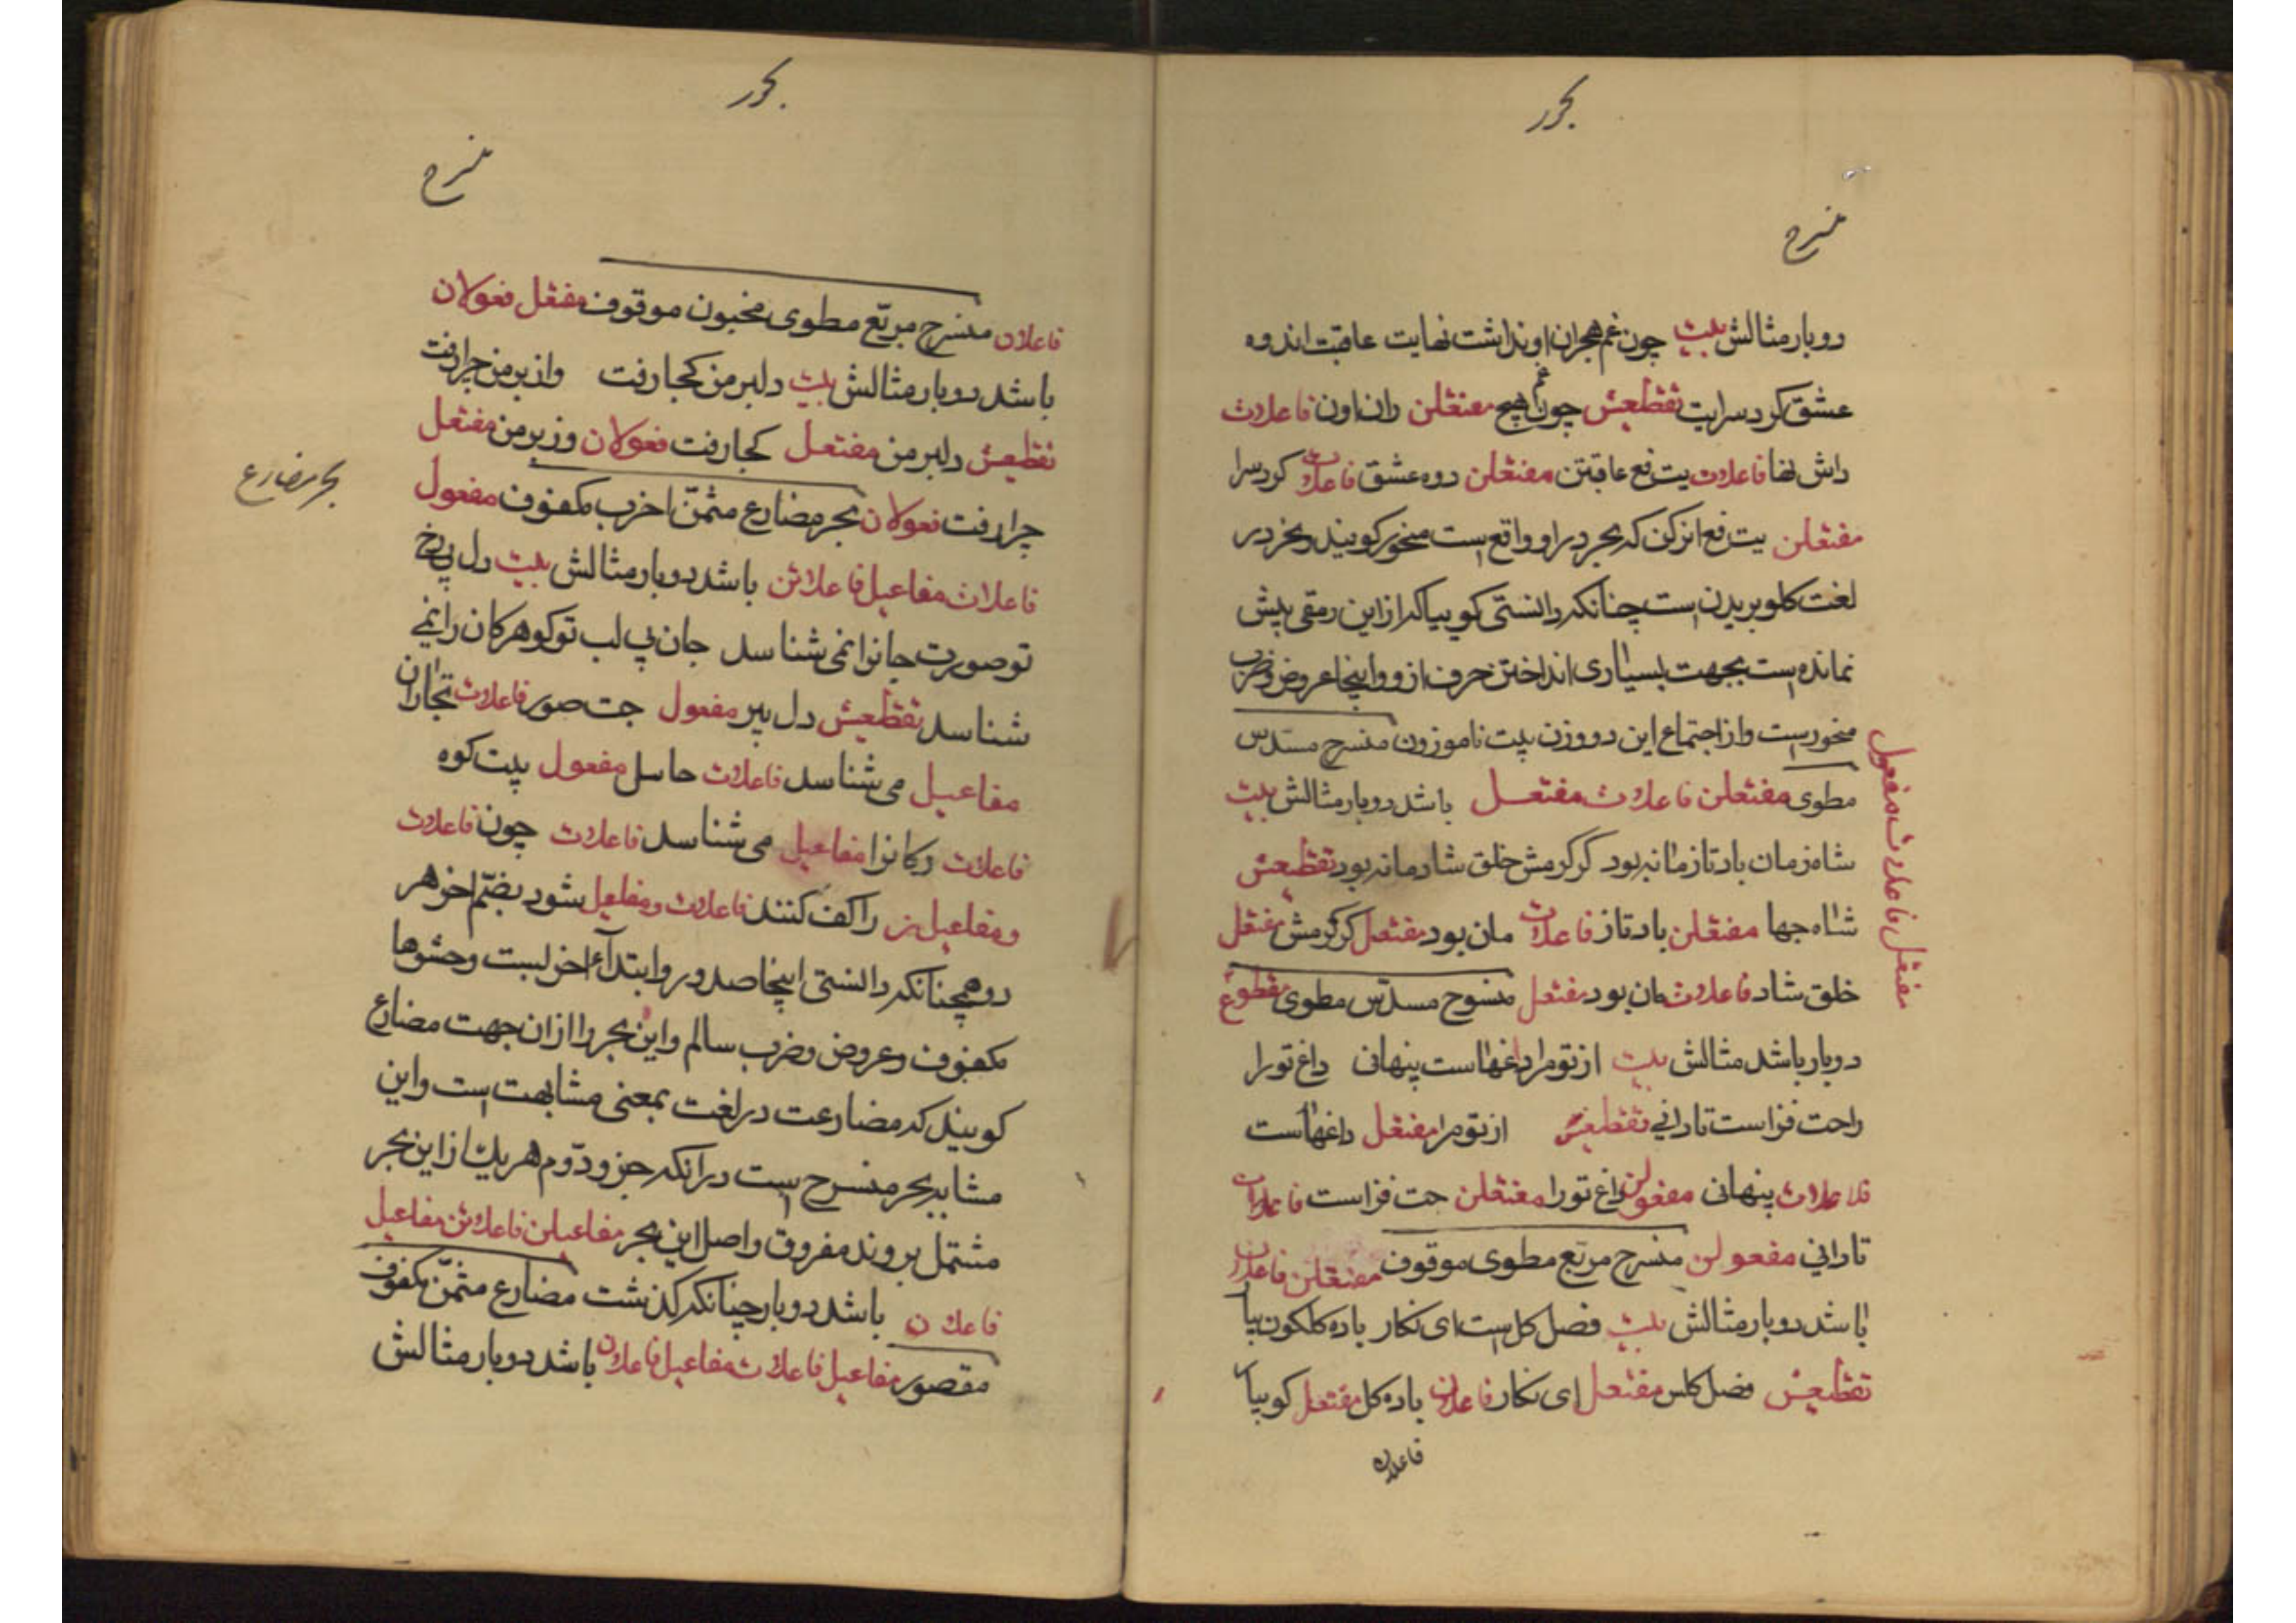 بحور
منسرح
دوبار مثالش بیت چون غم هجران او نداشت نهایت عاقبت اندوه
عشق کرد سرایت تقطیعش چون غم هج مفتعلن ران اون فاعلات
داش نها فاعلات یت فع عاقبتن مفتعلن دوه عشق فاعلات کرد سرا
مفتعلن یت فع انرکن که بحر در او واقع است منحور کویند و نحر در
لغت کلو بریدن است چنانکه دانستی کوییا که از این رمقی بیش
نمانده است بجهت بسیاری انداختن حرف از و و اینجا عروض و ضرب
منحور است و از اجتماع این دو وزن بیت ناموزون منسرح مسدس
مطوی مفتعلن فاعلات مفتعل باشد دوبار مثالش بیت
شاه زمان باد تا زمانه بود کز کرمش خلق شادمانه بود تقطیعش
شاه جها مفتعلن باد تاز فاعلات مان بود مفتعل کز کرمش مفتعل
خلق شاد فاعلات مان بود مفتعل منسرح مسدس مطوی مقطوع
مفتعل فاعلات مفعول
دوبار باشد مثالش بیت از تو مرا داغهاست پنهانی داغ تو را
راحت فزاست تا دانی تقطیعش از تو مرا مفتعل داغهاست
فاعلات پنهانی مفعولن داغ تو را مفتعلن حت فزاست فاعلات
تا دانی مفعولن منسرح مربع مطوی موقوف مفتعلن فاعلان
باشد دوبار مثالش بیت فصل کل است ای نکار باده کلکون بیا
تقطیعش فصل کلس مفتعل ای نکار فاعلان باده کل مفتعل کو بیا
فاعلان
بحور
منسرح
فاعلان منسرح مربع مطوی مخبون موقوف مفتعل فعولان
باشد دوبار مثالش بیت دلبر من کجا رفت وز بر من چرا رفت
تقطیعش دلبر من مفتعل کجا رفت فعولان وز بر من مفتعل
بحر مضارع
چرا رفت فعولان بحر مضارع مثمن اخرب مکفوف مفعول
فاعلات مفاعیل فاعلاتن باشد دوبار مثالش بیت دل پی رخ
تو صورت جانرا نمی شناسد جان پی لب تو کوهر کان را نمی
شناسد تقطیعش دل بیر مفعول جت صور فاعلات تجاران
مفاعیل می شناسد فاعلات حاسل مفعول بیت کوه
فاعلات رکانرا مفاعیل می شناسد فاعلات چون فاعلات
و مفاعیلن را کف کنند فاعلات و مفاعیل شود بضم اخر هر
دو همچنانکه دانستی اینجا صدور و ابتداء اخرلیست و حشوها
مکفوف و عروض و ضرب سالم و این بحر را از ان جهت مضارع
کویند که مضارعت در لغت بمعنی مشابهت است و این
مشابه بحر منسرح است در انکه جزو دوم هر یک از این بحر
مشتمل بر وتد مفروق و اصل این بحر مفاعیلن فاعلاتن مفاعیل
فاعلان باشد دوبار چنانکه کذشت مضارع مثمن مکفوف
مقصور مفاعیل فاعلات مفاعیل فاعلان باشد دوبار مثالش